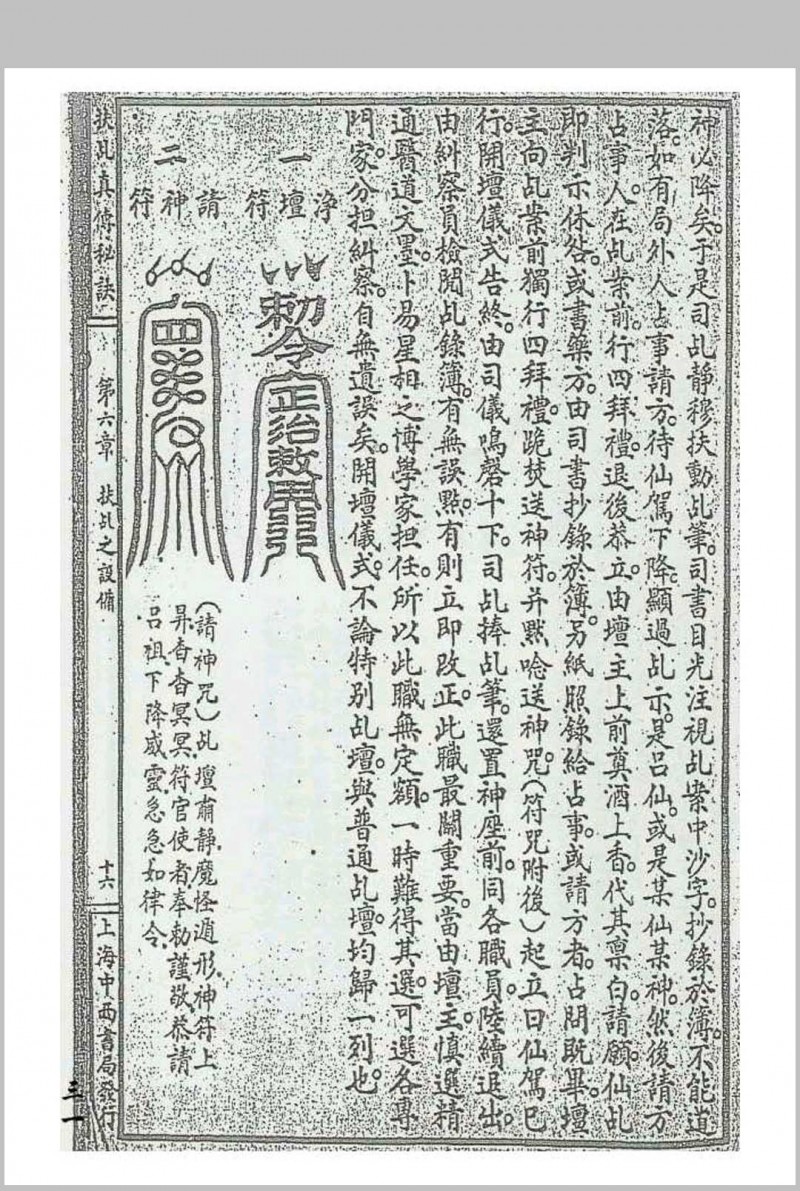 神必降矣。于是司乩靜穆扶動乩筆。司書目光注視乩案中沙字。抄錄於簿。不能道
落。如有局外人占事請方。待仙駕下降。顯過乩示。是呂仙。或是某仙某神。然後請方
占事人。在乩案前。行四拜禮。退後恭立。由壇主上前奠酒上香。代其禀白。請願仙乩
即判示休咎。或書藥方。由司書抄錄於簿。另紙照錄給占事。或請方者。占問既畢。壇
主向乩案前獨行四拜禮。跪焚送神符。幷默唸送神咒。(符咒附後)起立曰仙駕已
行。開壇儀式告終。由司儀鳴磬十下。司乩捧乩筆。還置神座前。同各職員。陸續退出。
由糾察員檢閱乩錄簿。有無誤點。有則立即改正。此職最關重要。當由壇主慎選精
通醫道文墨。卜易星相之博學家担任。所以此職無定額。一時難得其選。可選各專
門家。分担糾察。自無遺誤矣。開壇儀式。不論特别乩壇。與普通乩壇。均歸一列也。
一 淨壇符
勅令
二 請神符
(請神咒)乩壇肅靜。魔怪遁形。神符上
昇。杳杳冥冥。符官使者。奉勅謹敬。恭請
呂祖。下降威靈。急急如律令。
扶乩真傳秘訣
第六章 扶乩之設備
十六
上海中西書局發行
三一